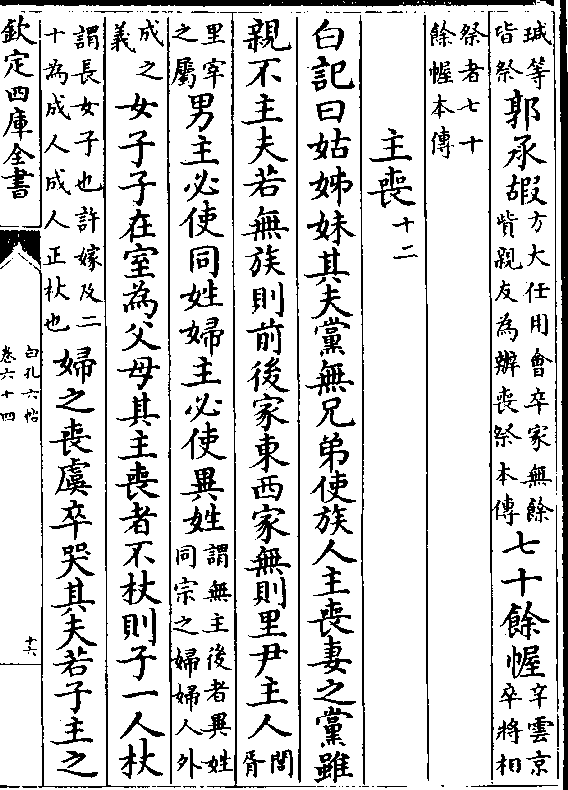 瑊等
皆祭
郭承嘏
方大任用會卒家無餘
貲親友為辦喪祭本傳
七十餘幄
辛雲京
卒將相
祭者七十
餘幄本傳
主喪
十二
白記曰姑姊妹其夫黨無兄弟使族人主喪妻之黨雖
親不主夫若無族則前後家東西家無則里尹主人
閭胥
里宰
之屬
男主必使同姓婦主必使異姓
謂無主後者異姓
同宗之婦婦人外
成之
義
女子子在室為父母其主喪者不杖則子一人杖
謂長女子也許嫁及二
十為成人成人正杖也
婦之喪虞卒哭其夫若子主之
欽定四庫全書
白孔六帖
卷六十四
十六